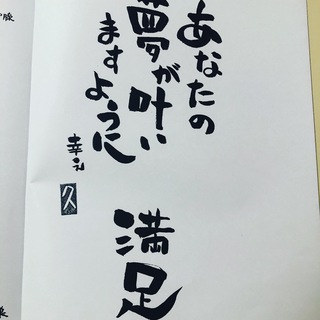 あなたの
夢が叶い
ますように
久
満足